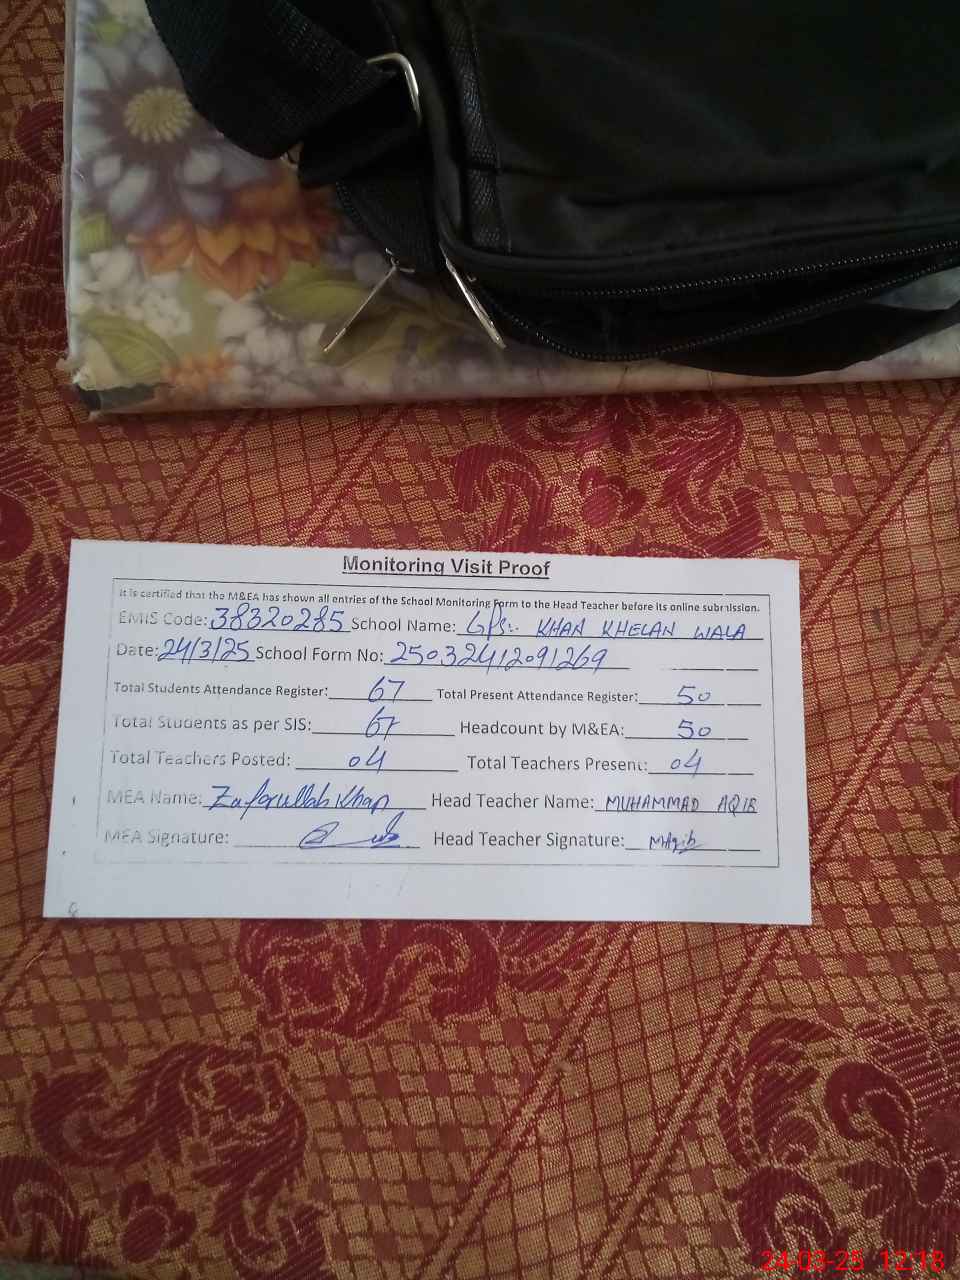 Monitoring Visit Proof
It is certified that the M&EA has shown all entries of the School Monitoring Form to the Head Teacher before its online submission.
EMIS Code: 38320285 School Name: GPS:. KHAN KHELAN WALA
Date: 24/3/25 School Form No: 25032412091269
Total Students Attendance Register: 67 Total Present Attendance Register: 50
Total Students as per SIS: 67 Headcount by M&EA: 50
Total Teachers Posted: 04 Total Teachers Present: 04
MEA Name: Zafarullah Khan Head Teacher Name: MUHAMMAD AQIB
MEA Signature: Head Teacher Signature: MAqib
24-03-25 12:18